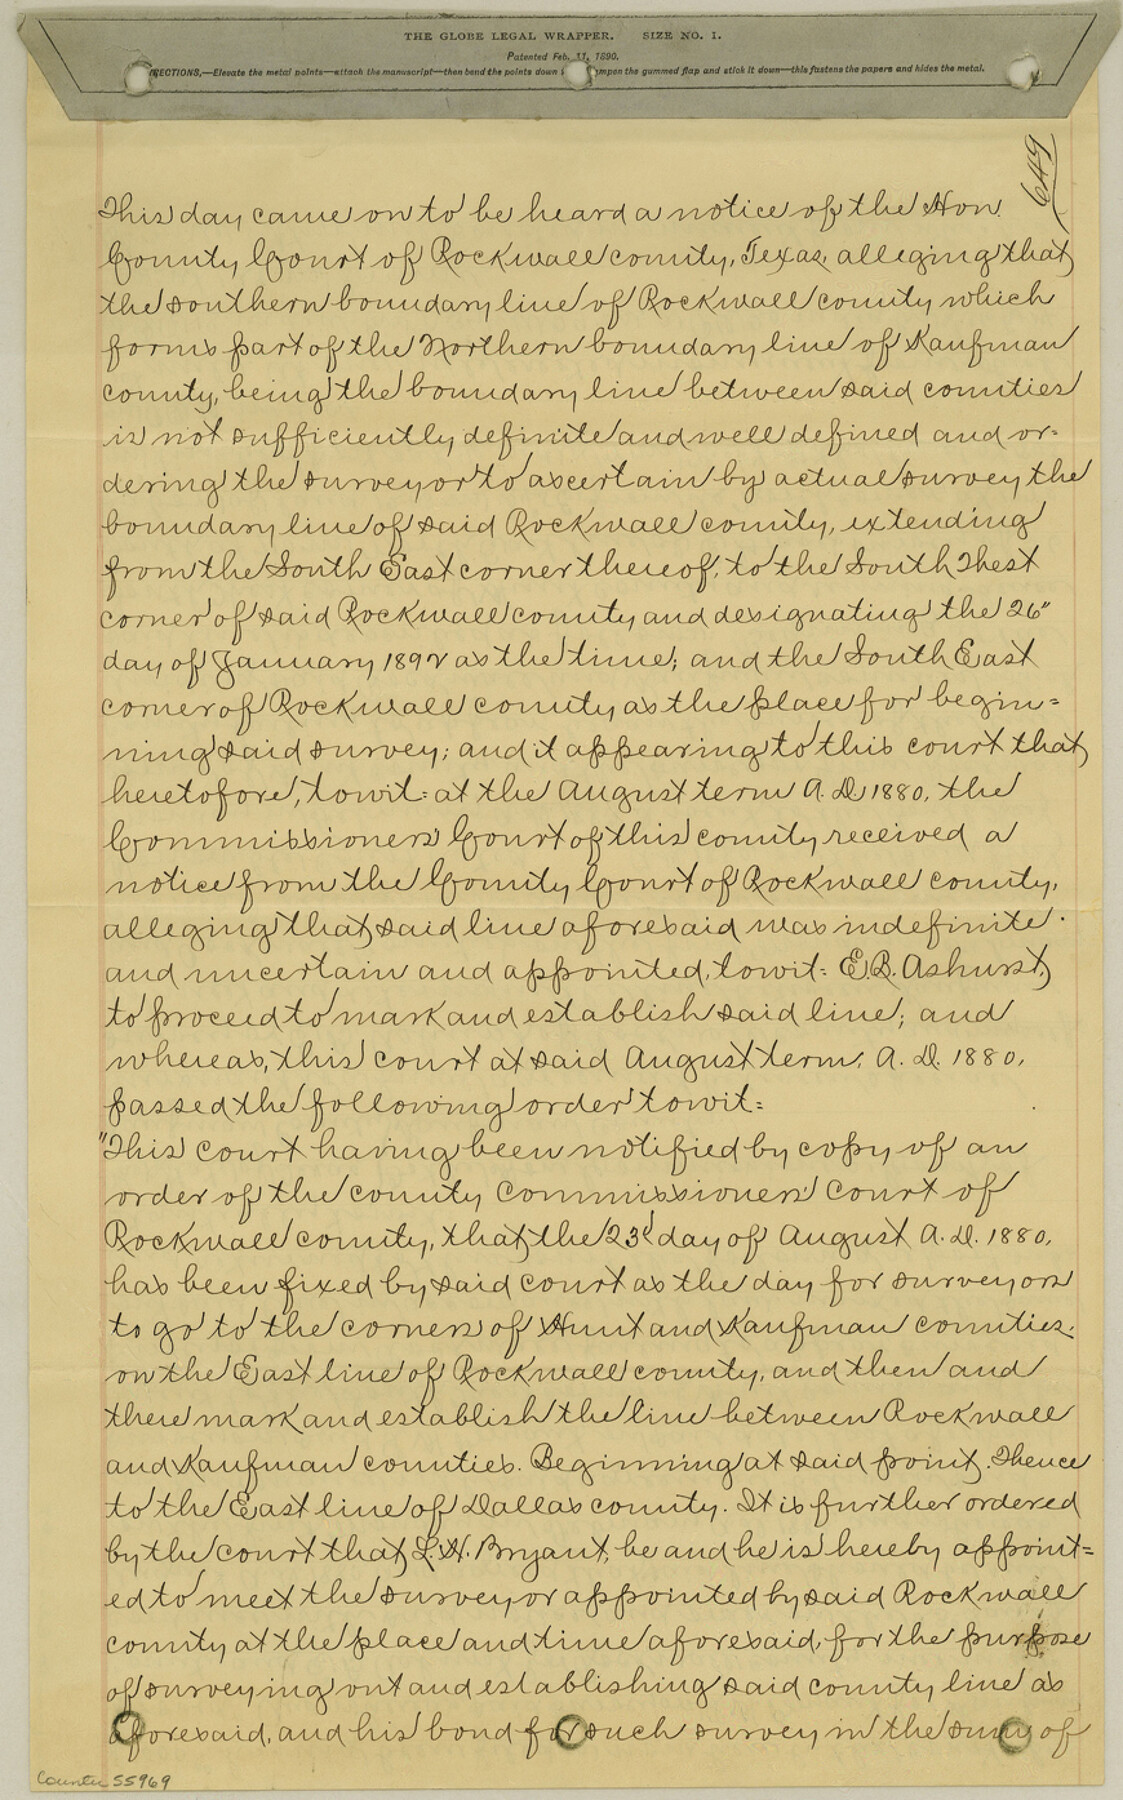 THE GLOBE LEGAL WRAPPER. SIZE NO. 1.
Patented Feb. 11, 1890.
RECTIONS,—Elevate the metal points—attach the manuscript—then bend the points down mpen the gummed flap and stick it down—this fastens the papers and hides the metal.
649
This day came on to be heard a notice of the Hon.
County Court of Rockwall county, Texas, alleging that
the southern boundary line of Rockwall county which
forms part of the Northern boundary line of Kaufman
county, being the boundary line between said counties
is not sufficiently definite and well defined and or=
dering the surveyor to ascertain by actual survey the
boundary line of said Rockwall county, extending
from the South East corner thereof, to the South West
corner of said Rockwall county and designating the 26"
day of January 1892 as the time; and the South East
corner of Rockwall county as the place for begin=
ning said survey; and it appearing to this court that
heretofore, towit: at the August term A.D. 1880, the
Commissioners' Court of this county received a
notice from the County Court of Rockwall county,
alleging that said line aforesaid was indefinite
and uncertain and appointed, towit: E.B. Ashurst,
to proceed to mark and establish said line; and
whereas, this court at said August term, A.D. 1880,
passed the following order towit:
"This court having been notified by copy of an
order of the county commissioners' court of
Rockwall county, that the 23d day of August A.D. 1880,
has been fixed by said court as the day for surveyors
to go to the corners of Hunt and Kaufman counties.
on the East line of Rockwall county, and then and
there mark and establish the line between Rockwall
and Kaufman counties. Beginning at said point. Thence
to the East line of Dallas county. It is further ordered
by the court that L.H. Bryant, be and he is hereby appoint=
ed to meet the surveyor appointed by said Rockwall
county at the place and time aforesaid, for the purpose
of surveying out and establishing said county line as
aforesaid, and his bond for such survey in the sum of
Counter 55969